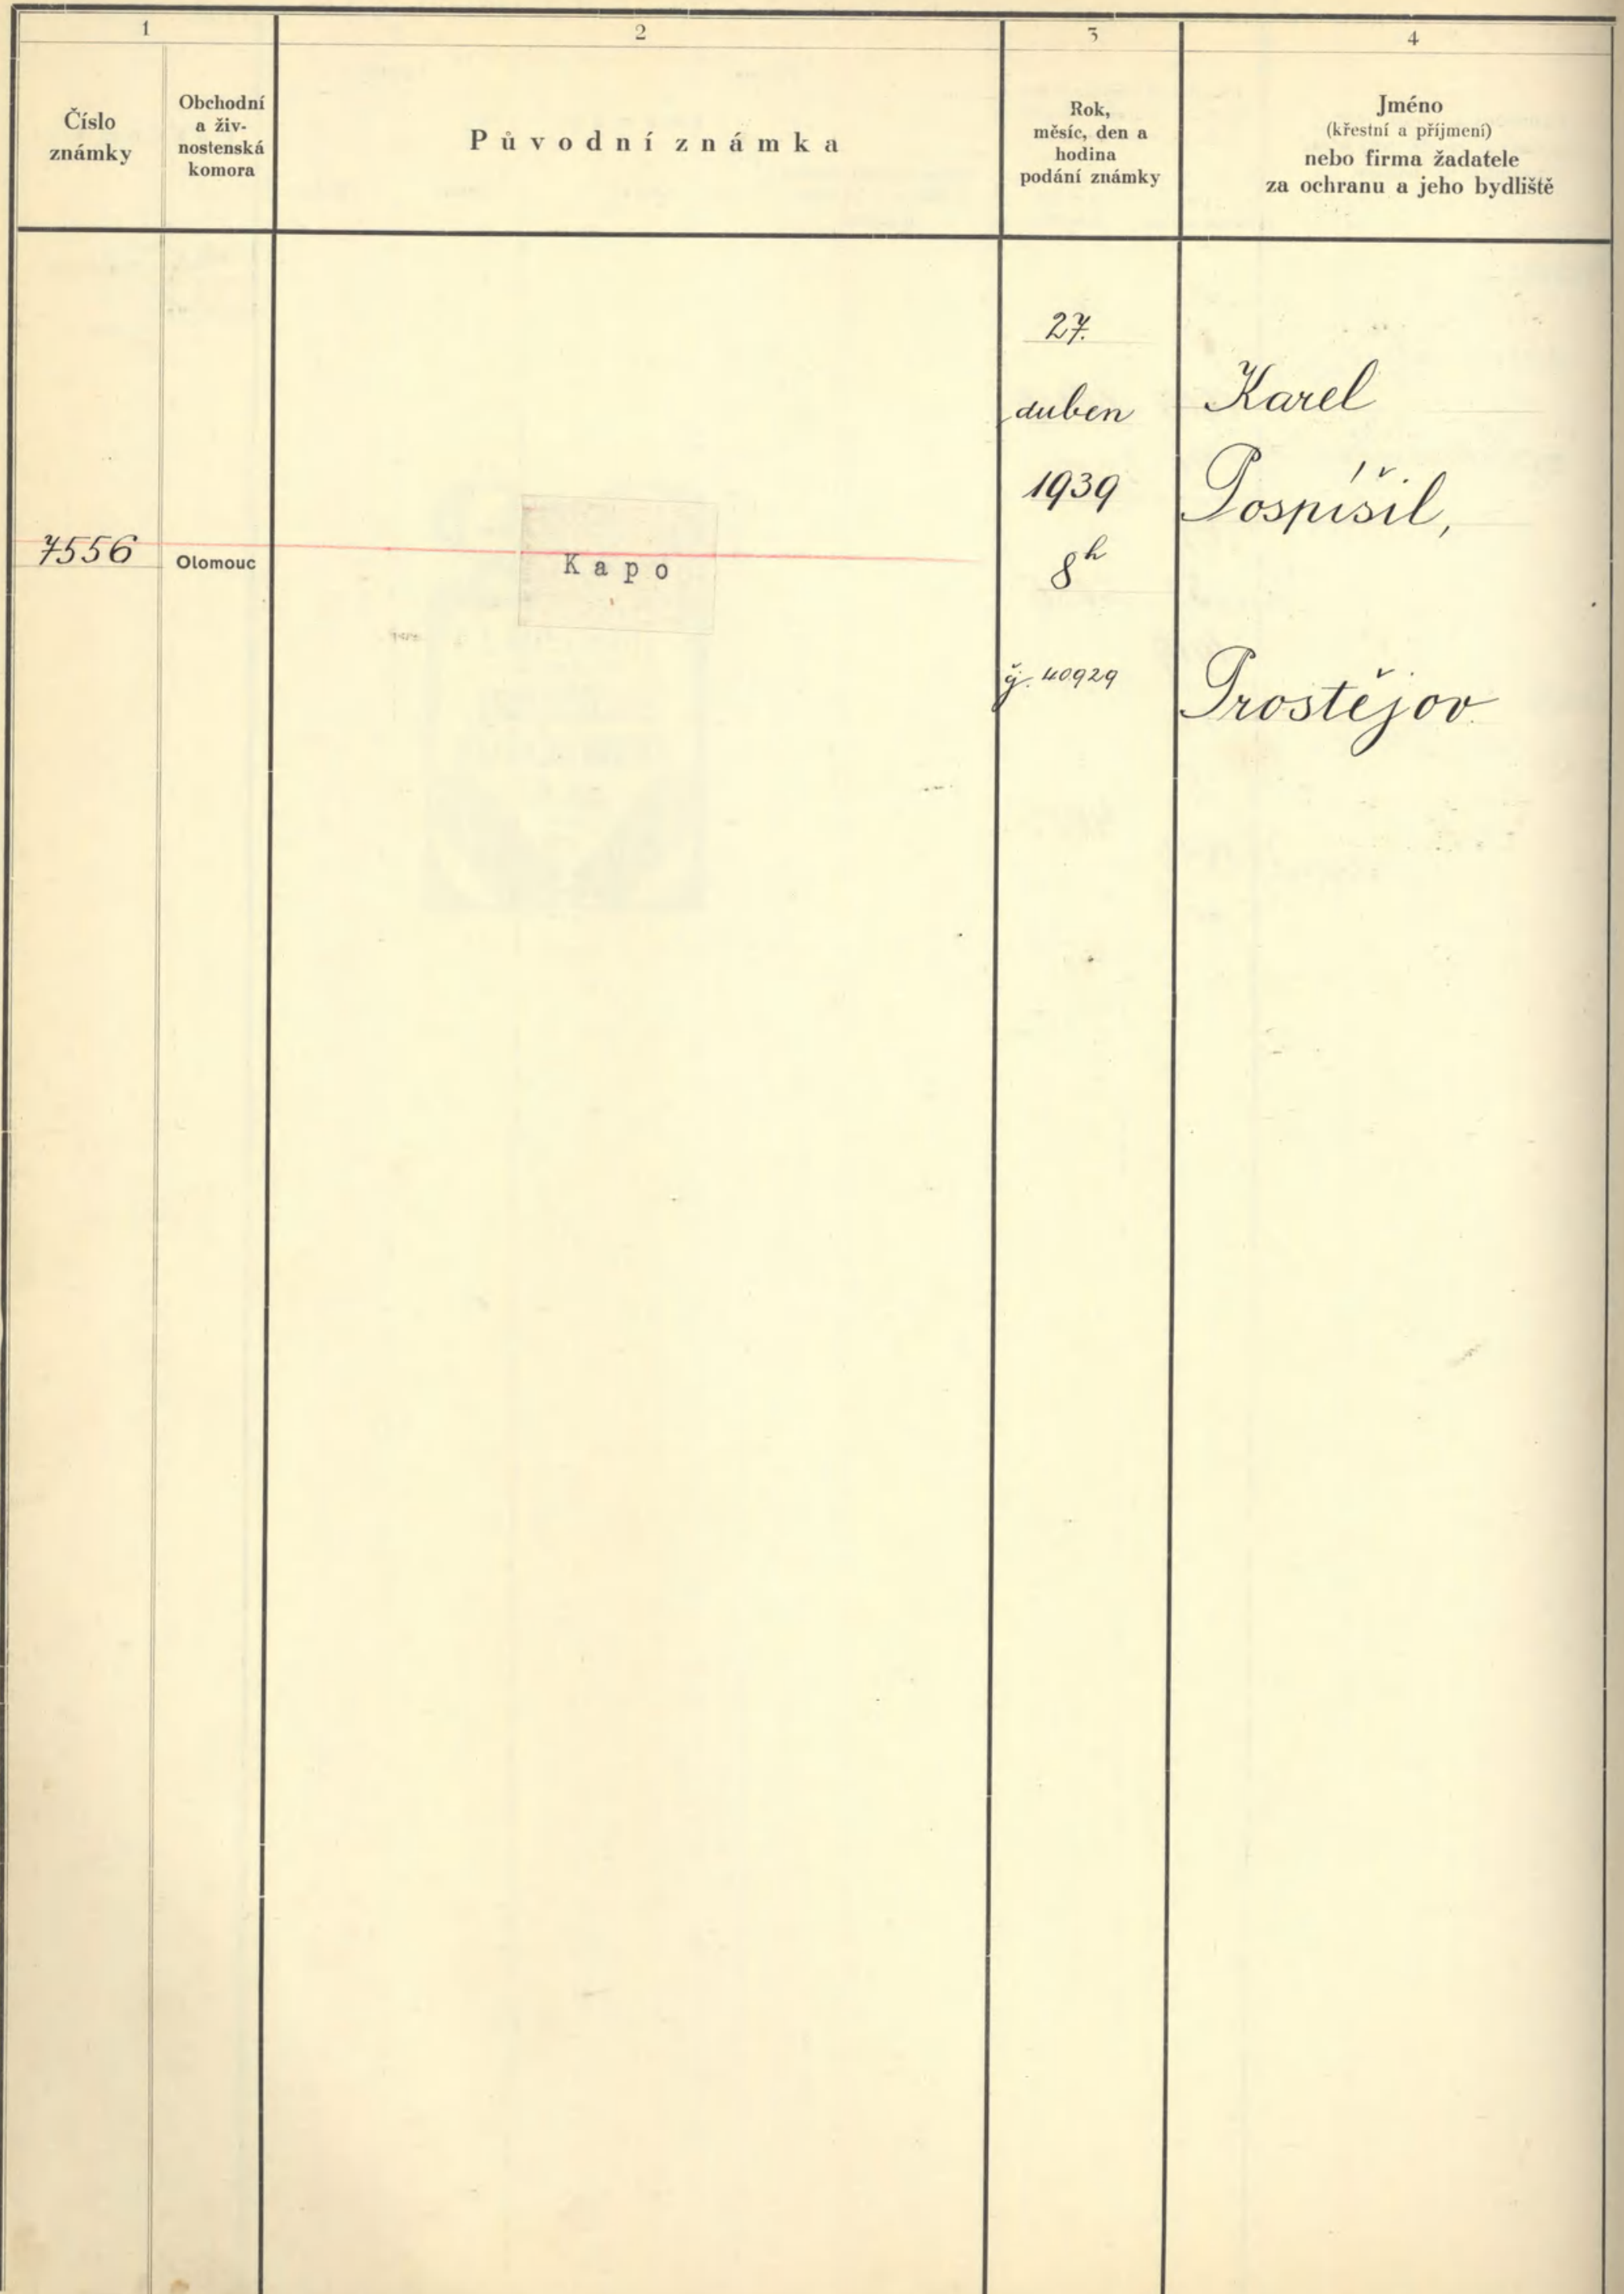 1
2
3
4
Číslo
známky
Obchodní
a živ-
nostenská
komora
Původní známka
Rok,
měsíc, den a
hodina
podání známky
Jméno
(křestní a příjmení)
nebo firma žadatele
za ochranu a jeho bydliště
7556
Olomouc
Kapo
27.
duben
1939
8h
čj. 40929
Karel
Pospíšil,
Prostějov